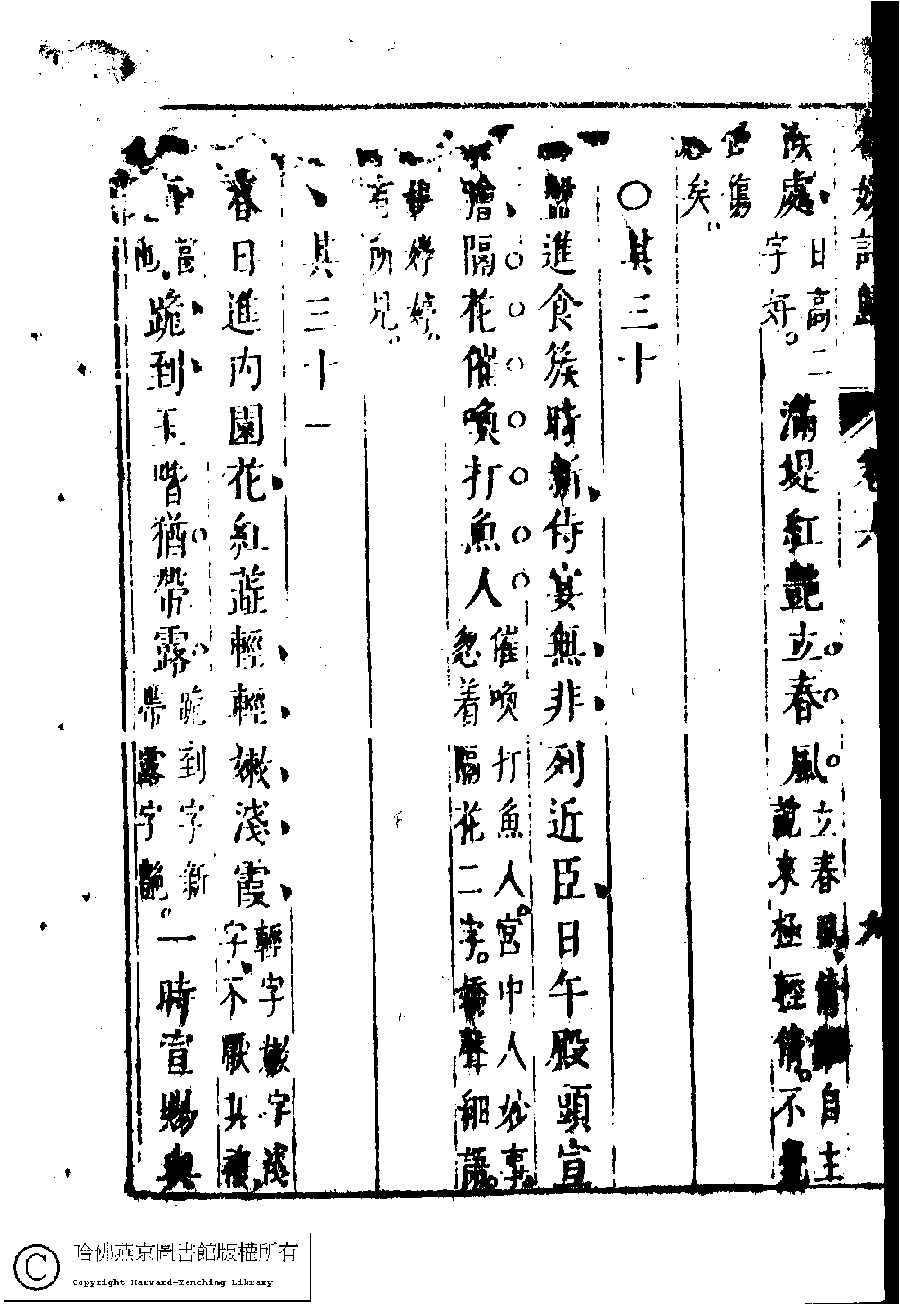 卷六
處日高二
字好。滿堤紅艷立春風。立春風
自主
說來極輕倩。不覺
傷
矣。
○其三十
船進食簇時新侍宴無非列近臣日午殿頭宣
鱠隔花催喚打魚人催喚打魚人。宮中人妙事。
急着隔花二字。嬌聲細語。
有所見。
其三十一
春日進內園花紅蕊輕輕嫩淺霞輕字嫩字淺
字,不厭其複,
跪到玉堦猶帶露跪到字新
帶露字艷。一時宣賜與
哈佛燕京圖書館版權所有
Copyright Harvard-Yenching Library